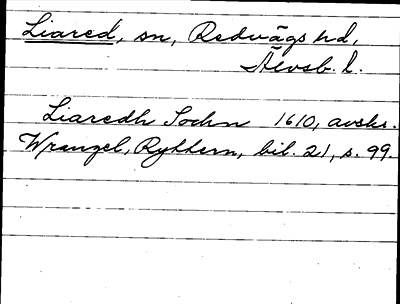 Liared, sn, Redvägs hd,
Älvsb. l.
Liaredh Sochn 1610, avskr.
Wrangel, Rytthern, bil. 21, s. 99.